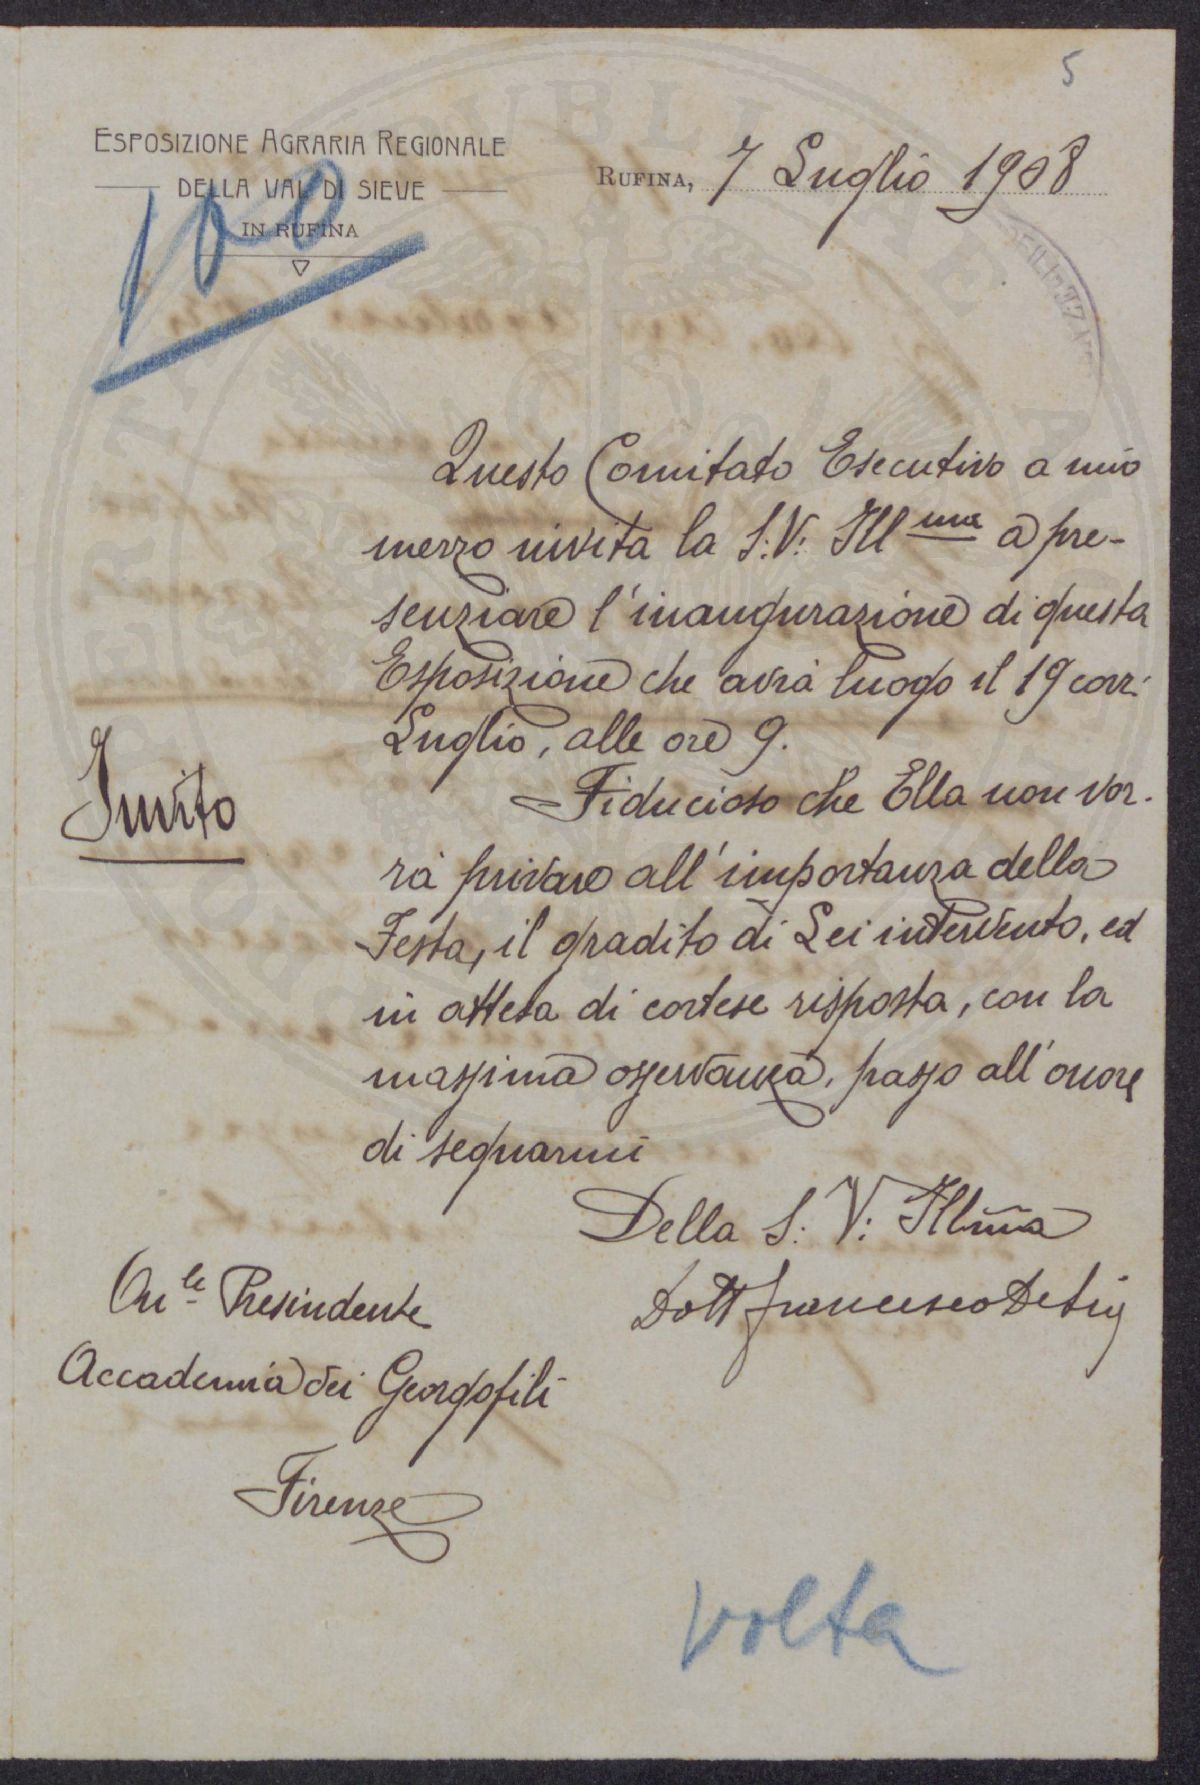 5
ESPOSIZIONE AGRARIA REGIONALE
DELLA VAL DI SIEVE
IN RUFINA
100
RUFINA, 7 Luglio 1908
Questo Comitato Esecutivo a mio
mezzo invita la S. V. Ill ma a pre-
senziare l'inaugurazione di questa
Esposizione che avrà luogo il 19 corr.
Luglio, alle ore 9.
Invito
Fiducioso che Ella non vor-
rà privare all'importanza della
Festa, il gradito di Lei intervento, ed
in attesa di cortese risposta, con la
massima osservanza, passo all'onore
di segnarmi
Della S. V. Illma
Dott Francesco
On.le Presindente
Accademia dei Georgofili
Firenze
volta